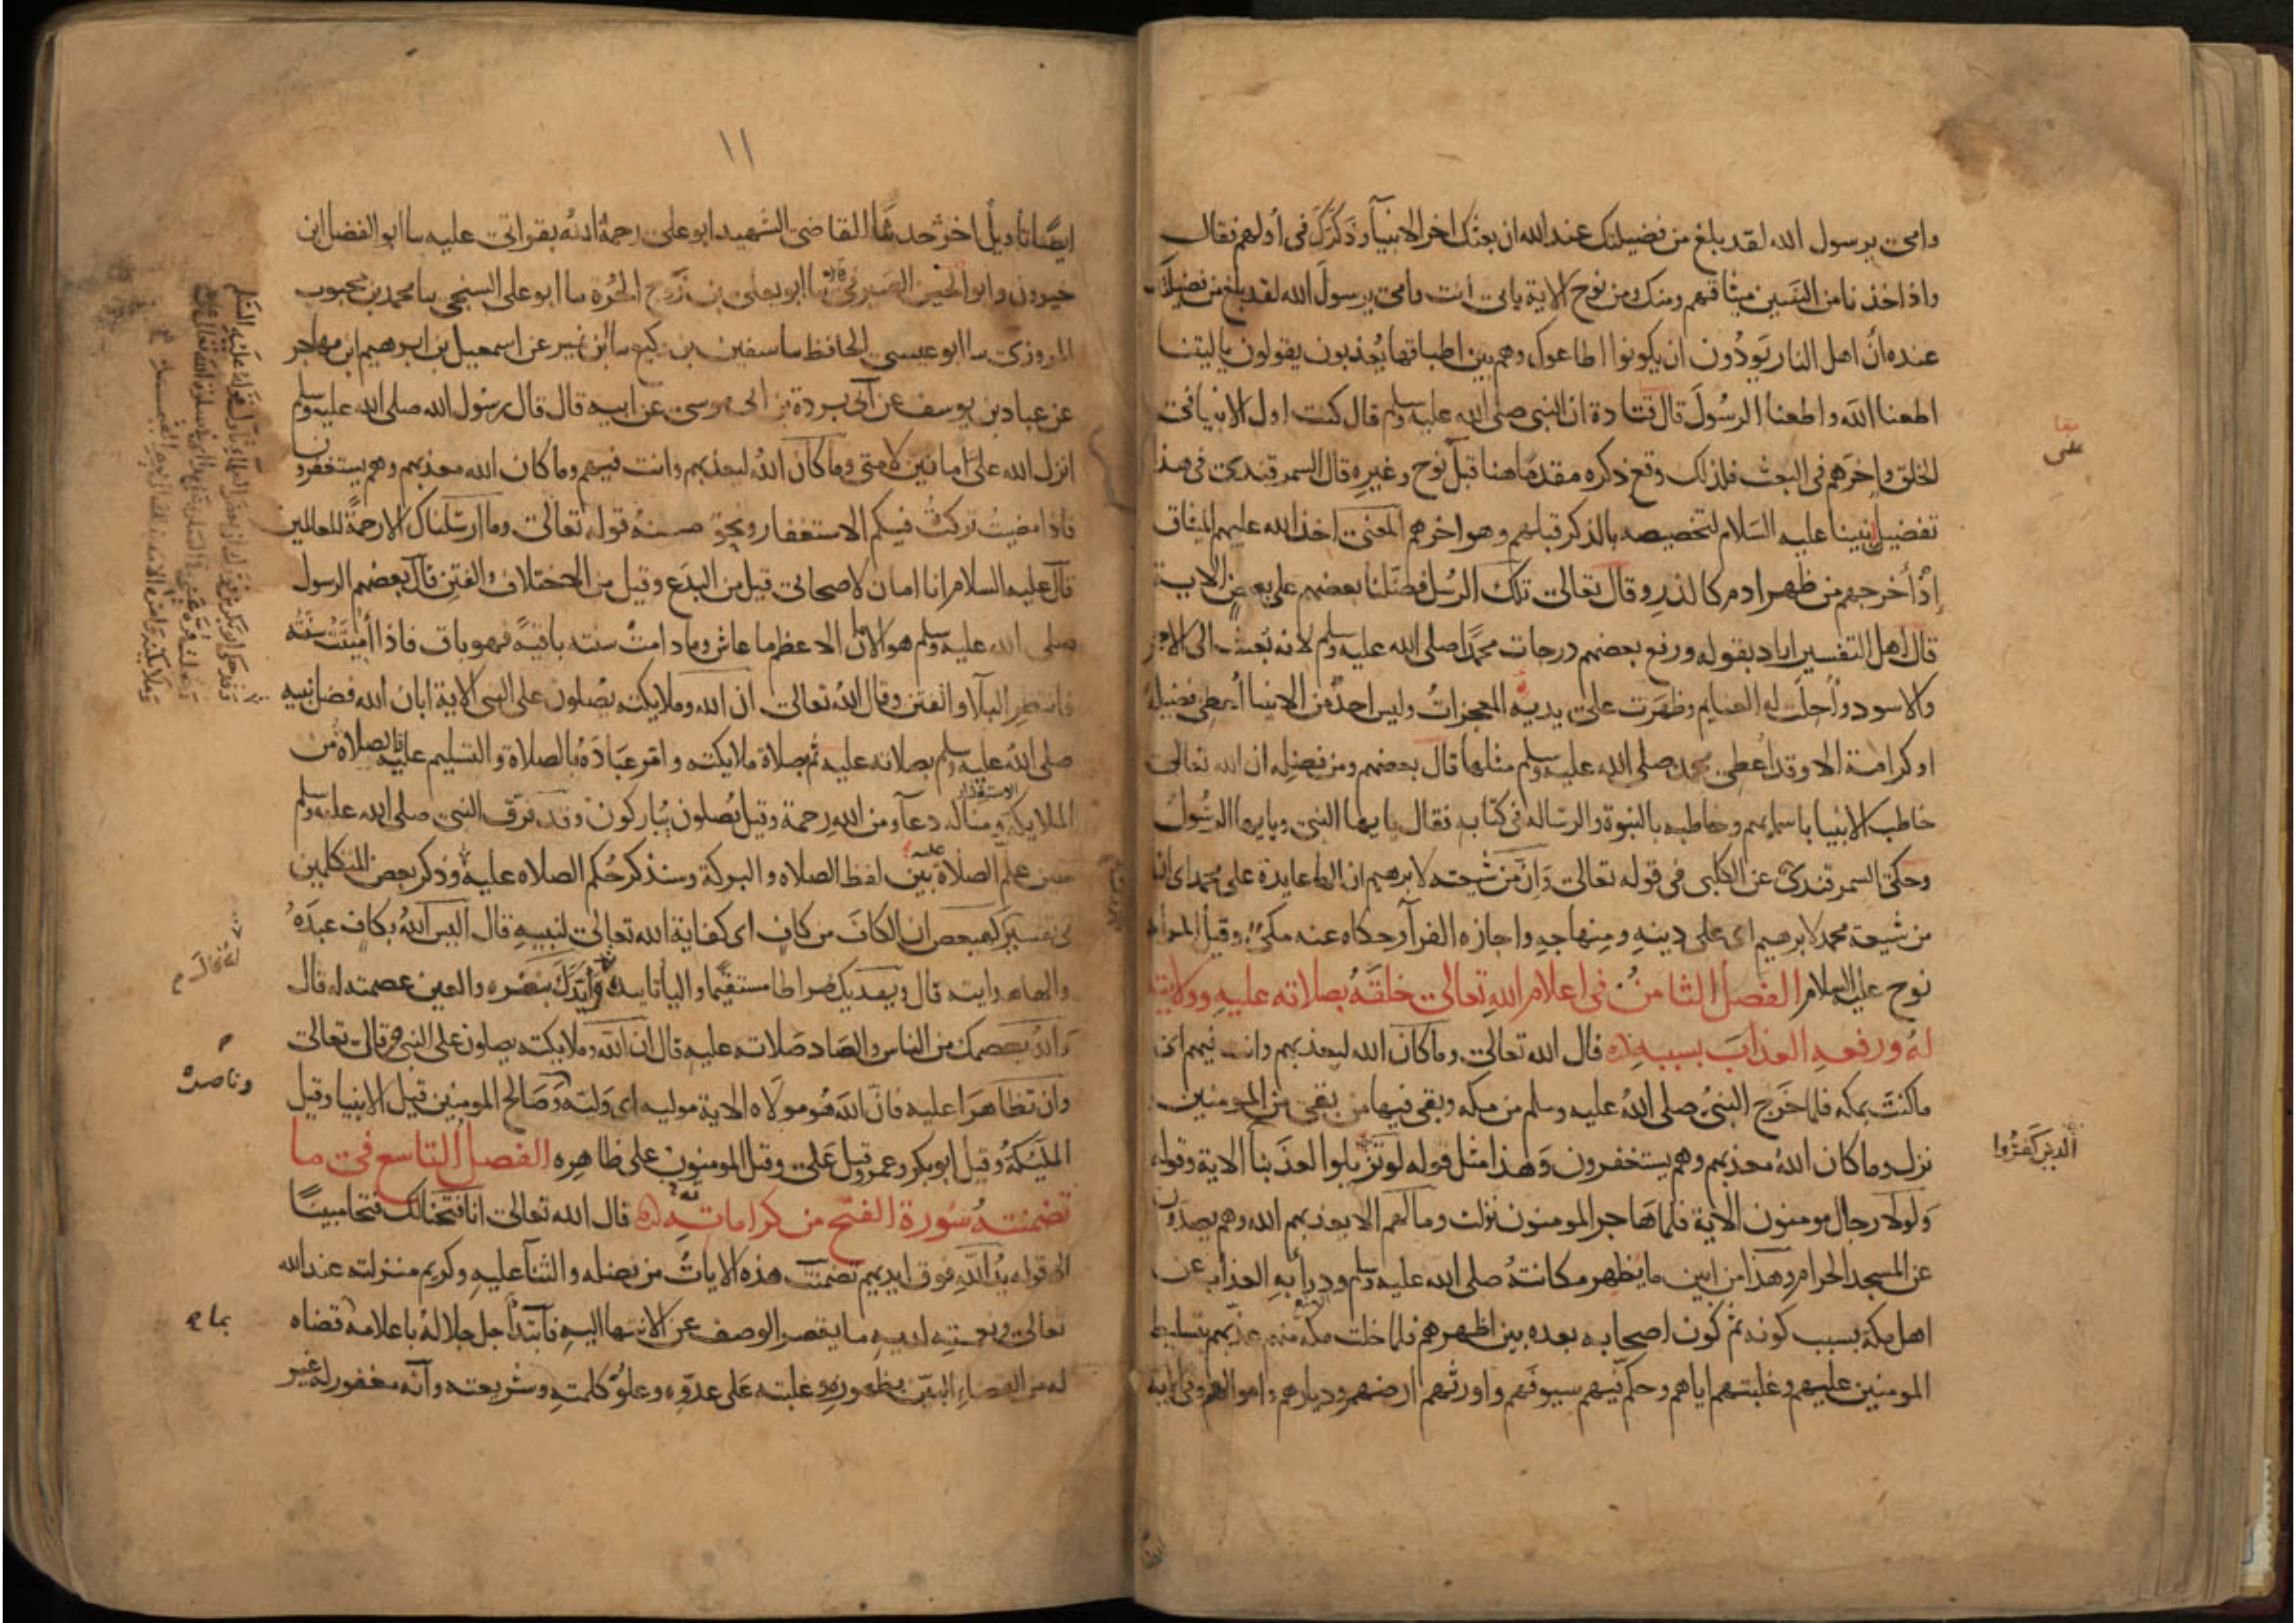 وامى يرسول الله لقد بلغ من فضيلتك عند الله ان بعثك اخر الانبيآ وذكرك فى أولهم فقال
واذ اخذنا من النبيين ميثاقهم ومنك ومن نوح الاية بابى أنت وامى يرسول الله لقد بلغ من فضيلتك
عنده أن اهل النار يودون ان يكونوا اطاعوك وهم بين اطباقها يعذبون يقولون ياليتنا
اطعنا الله واطعنا الرسول قال قتادة ان النبى صلى الله عليه وسلم قال كنت اول الانبيا فى
الخلق واخرهم فى البعث فلذلك وقع ذكره مقدما هنا قبل نوح وغيره قال السمرقندى فى هذا
تفضيل نبينا عليه السلام لتخصيصه بالذكر قبلهم وهو اخرهم المعنى اخذ الله عليهم الميثاق
إذ أخرجهم من ظهر ادم كالذر وقال تعالى تلك الرسل فضلنا بعضهم على بعض الاية
قال اهل التفسير اراد بقوله ورفع بعضهم درجات محمدا صلى الله عليه وسلم لانه بعث الى الاحمر
والاسود وأحلت له الغنايم وظهرت على يديه المعجزات وليس احد من الانبيا أعطى فضيلة
او كرامة الا وقد أعطى محمد صلى الله عليه وسلم مثلها قال بعضهم ومن فضله ان الله تعالى
خاطب الانبيا باسمايهم وخاطبه بالنبوة والرساله فى كتابه فقال يايها النبى ويايها الرسول
وحكى السمرقندى عن الكلبى فى قوله تعالى وان من شيعته لابرهيم ان الها عايدة على محمد اى ان
من شيعة محمد لابرهيم اى على دينه ومنهاجه واجازه الفرآ وحكاه عنه مكى وقيل المراد
نوح عليه السلام الفصل الثامن فى اعلام الله تعالى خلقه بصلاته عليه وولايته
له ورفعه العذاب بسببه قال الله تعالى وما كان الله ليعذبهم وانت فيهم اى
ما كنت بمكه فلما خرج النبى صلى الله عليه وسلم من مكه وبقى فيها من بقى من المومنين
نزل وما كان الله معذبهم وهم يستغفرون وهذا مثل قوله لو تزيلوا لعذبنا الاية وقوله
الذين كفروا
ولولا رجال مومنون الاية فلما هاجر المومنون نزلت وما لهم الا يعذبهم الله وهم يصدون
عن المسجد الحرام وهذا من ابين ما يظهر مكانته صلى الله عليه وسلم ودرأ به العذاب عن
اهل مكة بسبب كونه ثم كون اصحابه بعده بين اظهرهم فلما خلت مكة منهم عذبهم بتسليط
المومنين عليهم وغلبتهم اياهم وحكم فيهم سيوفهم واورثهم ارضهم وديارهم واموالهم وفى الاية
١١
ايضا تأويل اخر حدثنا القاضى الشهيد ابو على رحمة الله بقراتى عليه نا ابو الفضل ابن
خيرون وابو الحسين الصيرفى نا ابو يعلى بن زوج الحرة نا ابو على السنجى نا محمد بن محبوب
المروزى نا ابو عيسى الحافظ نا سفين بن وكيع نا ابن نمير عن اسمعيل بن ابرهيم ابن مهاجر
عن عباد بن يوسف عن ابى بردة بن ابى موسى عن ابيه قال قال رسول الله صلى الله عليه وسلم
انزل الله على امانين لامتى وما كان الله ليعذبهم وانت فيهم وما كان الله معذبهم وهم يستغفرون
فاذا مضيت تركت فيكم الاستغفار ونحو منه قوله تعالى وما ارسلناك الا رحمة للعالمين
قال عليه السلام انا امان لاصحابى قيل من البدع وقيل من الاختلاف والفتن قال بعضهم الرسول
صلى الله عليه وسلم هو الامان الاعظم ما عاش وما دامت سنته باقية فهو باق فاذا أميتت سنته
فانتظر البلا والفتن وقال الله تعالى ان الله وملايكته يصلون على النبى الاية ابان الله فضل نبيه
صلى الله عليه وسلم بصلاته عليه ثم بصلاة ملايكته وامر عباده بالصلاة والتسليم عليه فالصلاة من
الملايكة ومنا له دعآ ومن الله رحمة وقيل يصلون يباركون وقد فرق النبى صلى الله عليه وسلم
حين علم الصلاة عليه بين لفظ الصلاه والبركة وسنذكر حكم الصلاه عليه وذكر بعض المتكلمين
فى تفسير كهيعص ان الكاف من كاف اى كفاية الله تعالى لنبيه قال اليس الله بكاف عبده
والها هدايته قال ويهديك صراطا مستقيما واليا تاييده وأيدك بنصره والعين عصمته له قال
والله يعصمك من الناس والصاد صلاته عليه قال ان الله وملايكته يصلون على النبى قال تعالى
وان تظاهرا عليه فان الله هو مولاه الاية موليه اى وليه وصالح المومنين قيل الانبيا وقيل
وناصره
المليكة وقيل ابو بكر وعمر وقيل على وقيل المومنون على ظاهره الفصل التاسع فى ما
تضمنته سورة الفتح من كراماته قال الله تعالى انا فتحنا لك فتحا مبينا
الى قوله يد الله فوق ايديهم تضمنت هذه الايات من فضله والثنآ عليه وكريم منزلته عند الله
تعالى ونعمته لديه ما يقصر الوصف عن الانتها اليه فابتدأ جل جلاله باعلامه قضاه
له من القضاء البين بظهوره وغلبته على عدوه وعلو كلمته وشريعته وأنه مغفور له غير